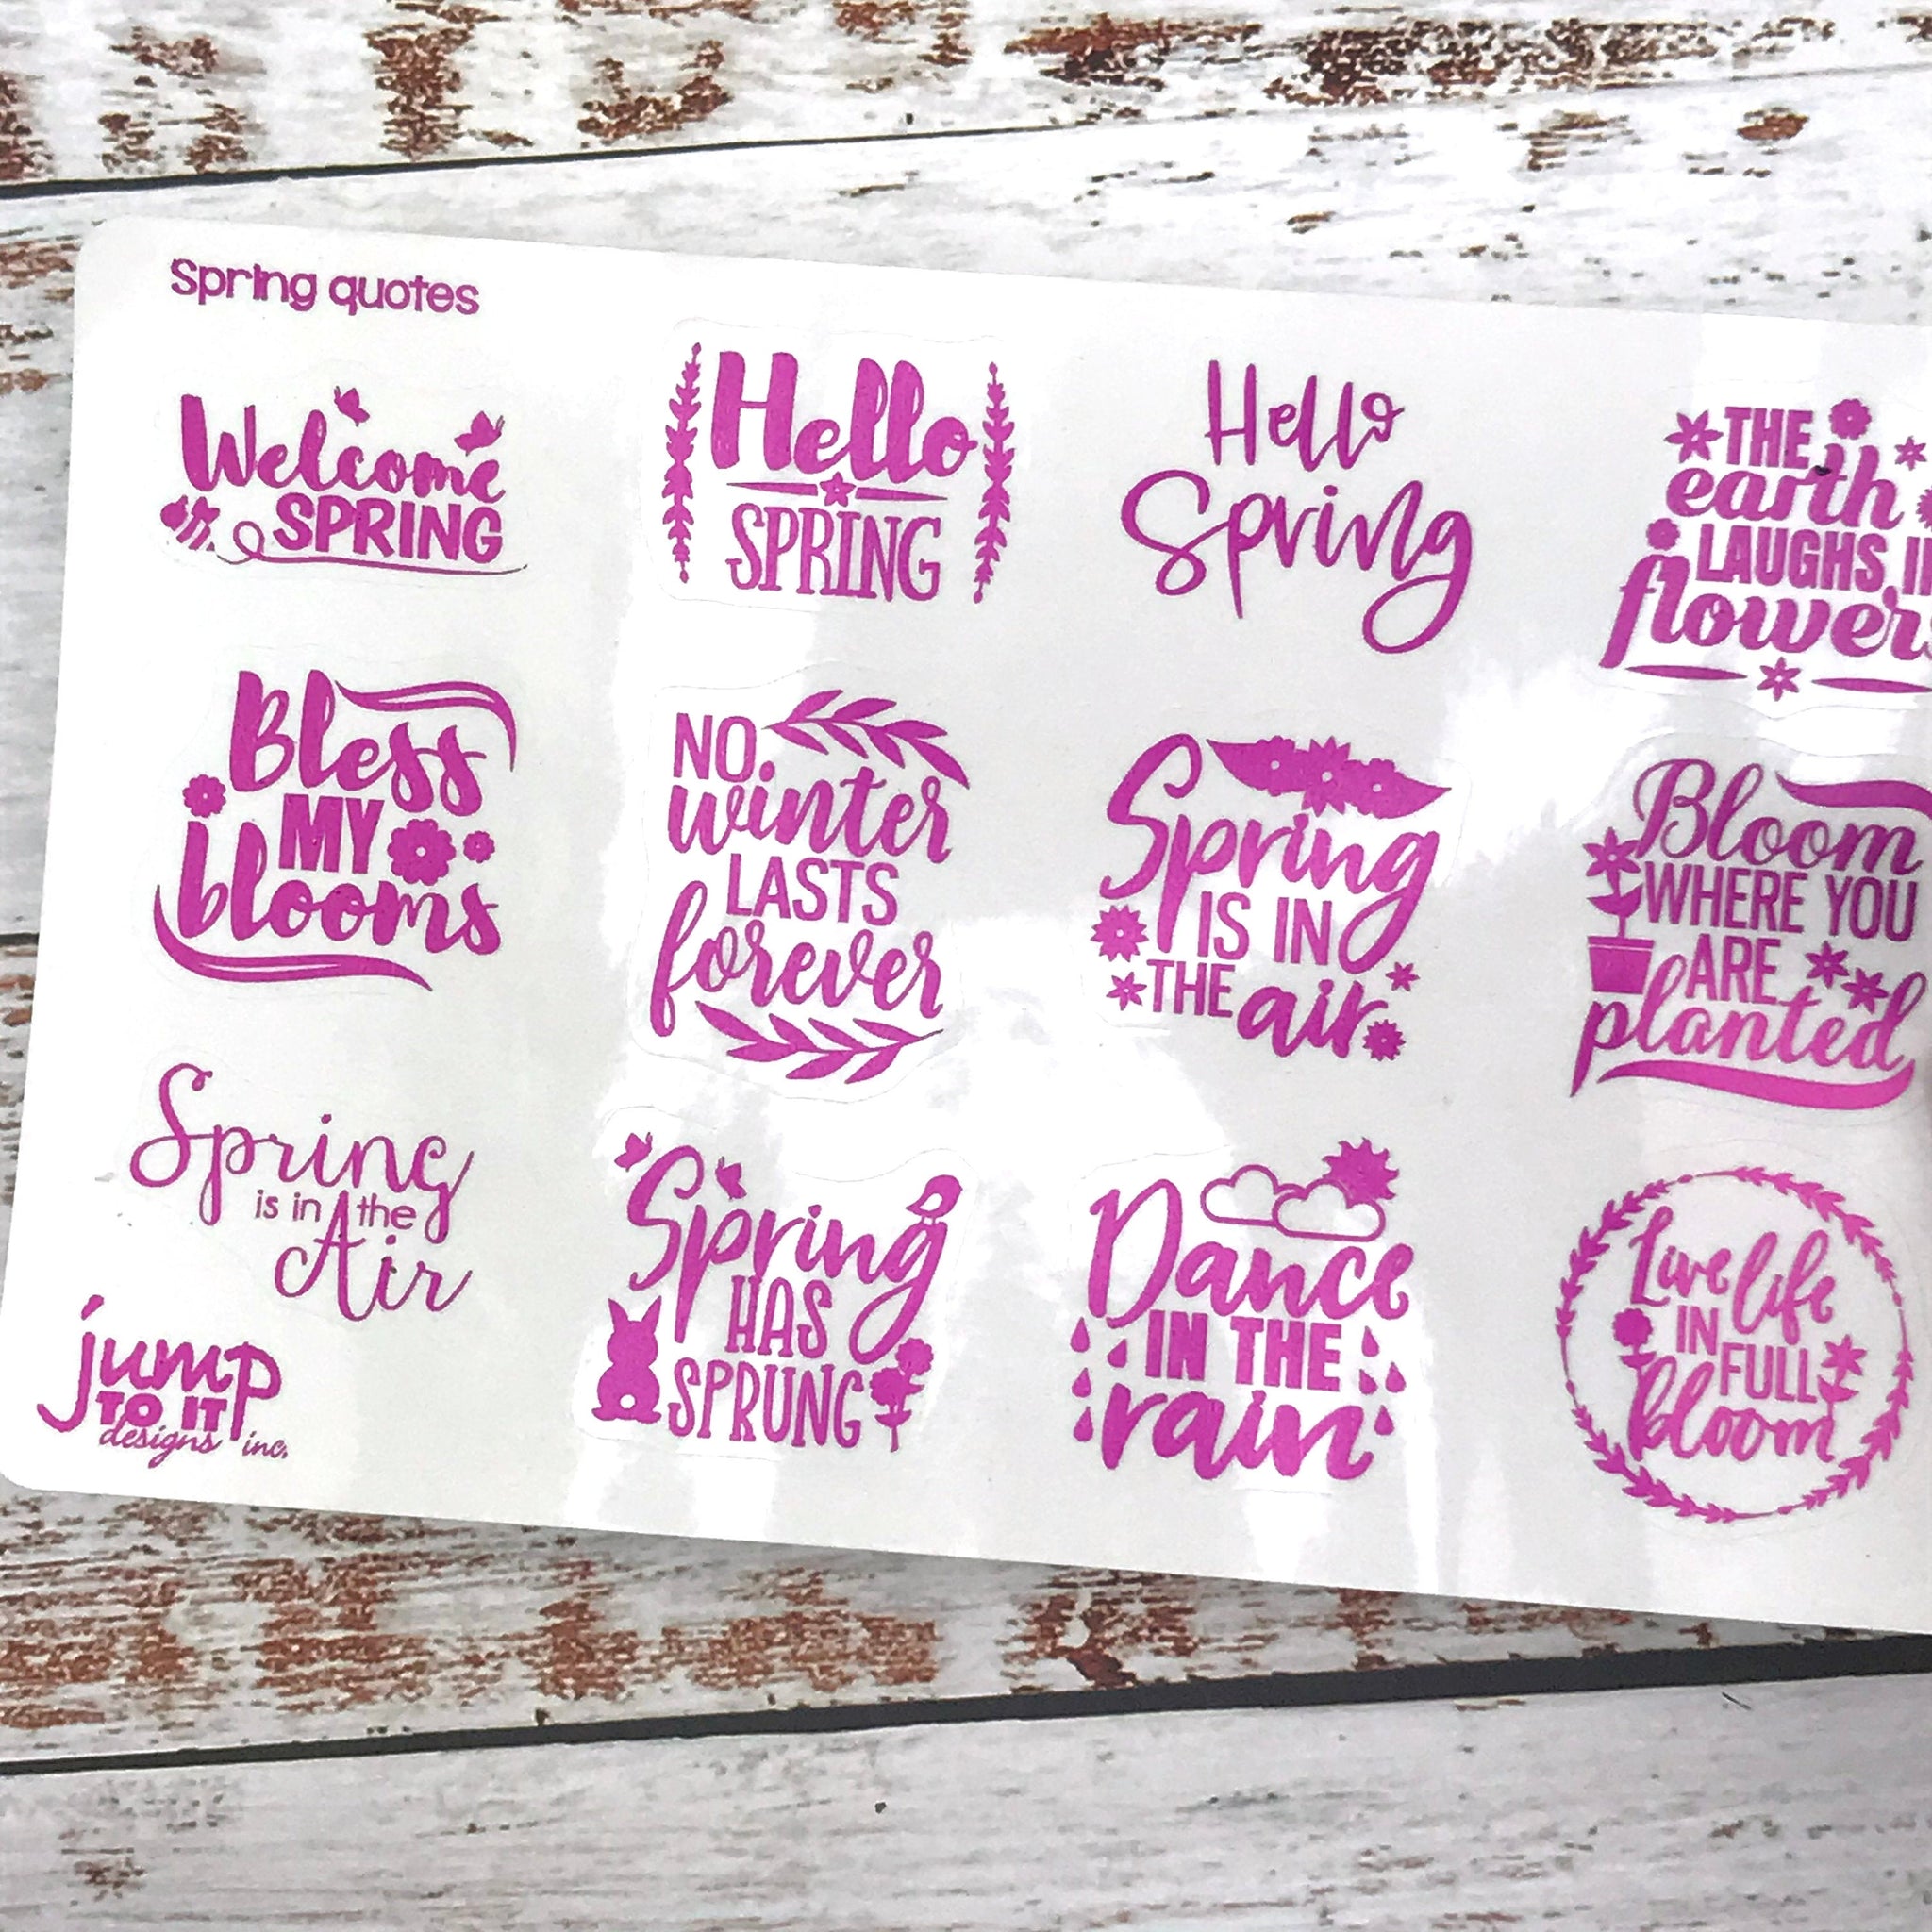 Spring quotes
Welcome
SPRING
Hello
SPRING
Hello
Spring
THE
earth
LAUGHS IN
flowers
Bless
MY
blooms
NO
winter
LASTS
forever
Spring
IS IN
THE air
Bloom
WHERE YOU
ARE
planted
Spring
is in the
Air
Spring
HAS
SPRUNG
Dance
IN THE
rain
Live life
IN FULL
bloom
jump
TO IT
designs inc.